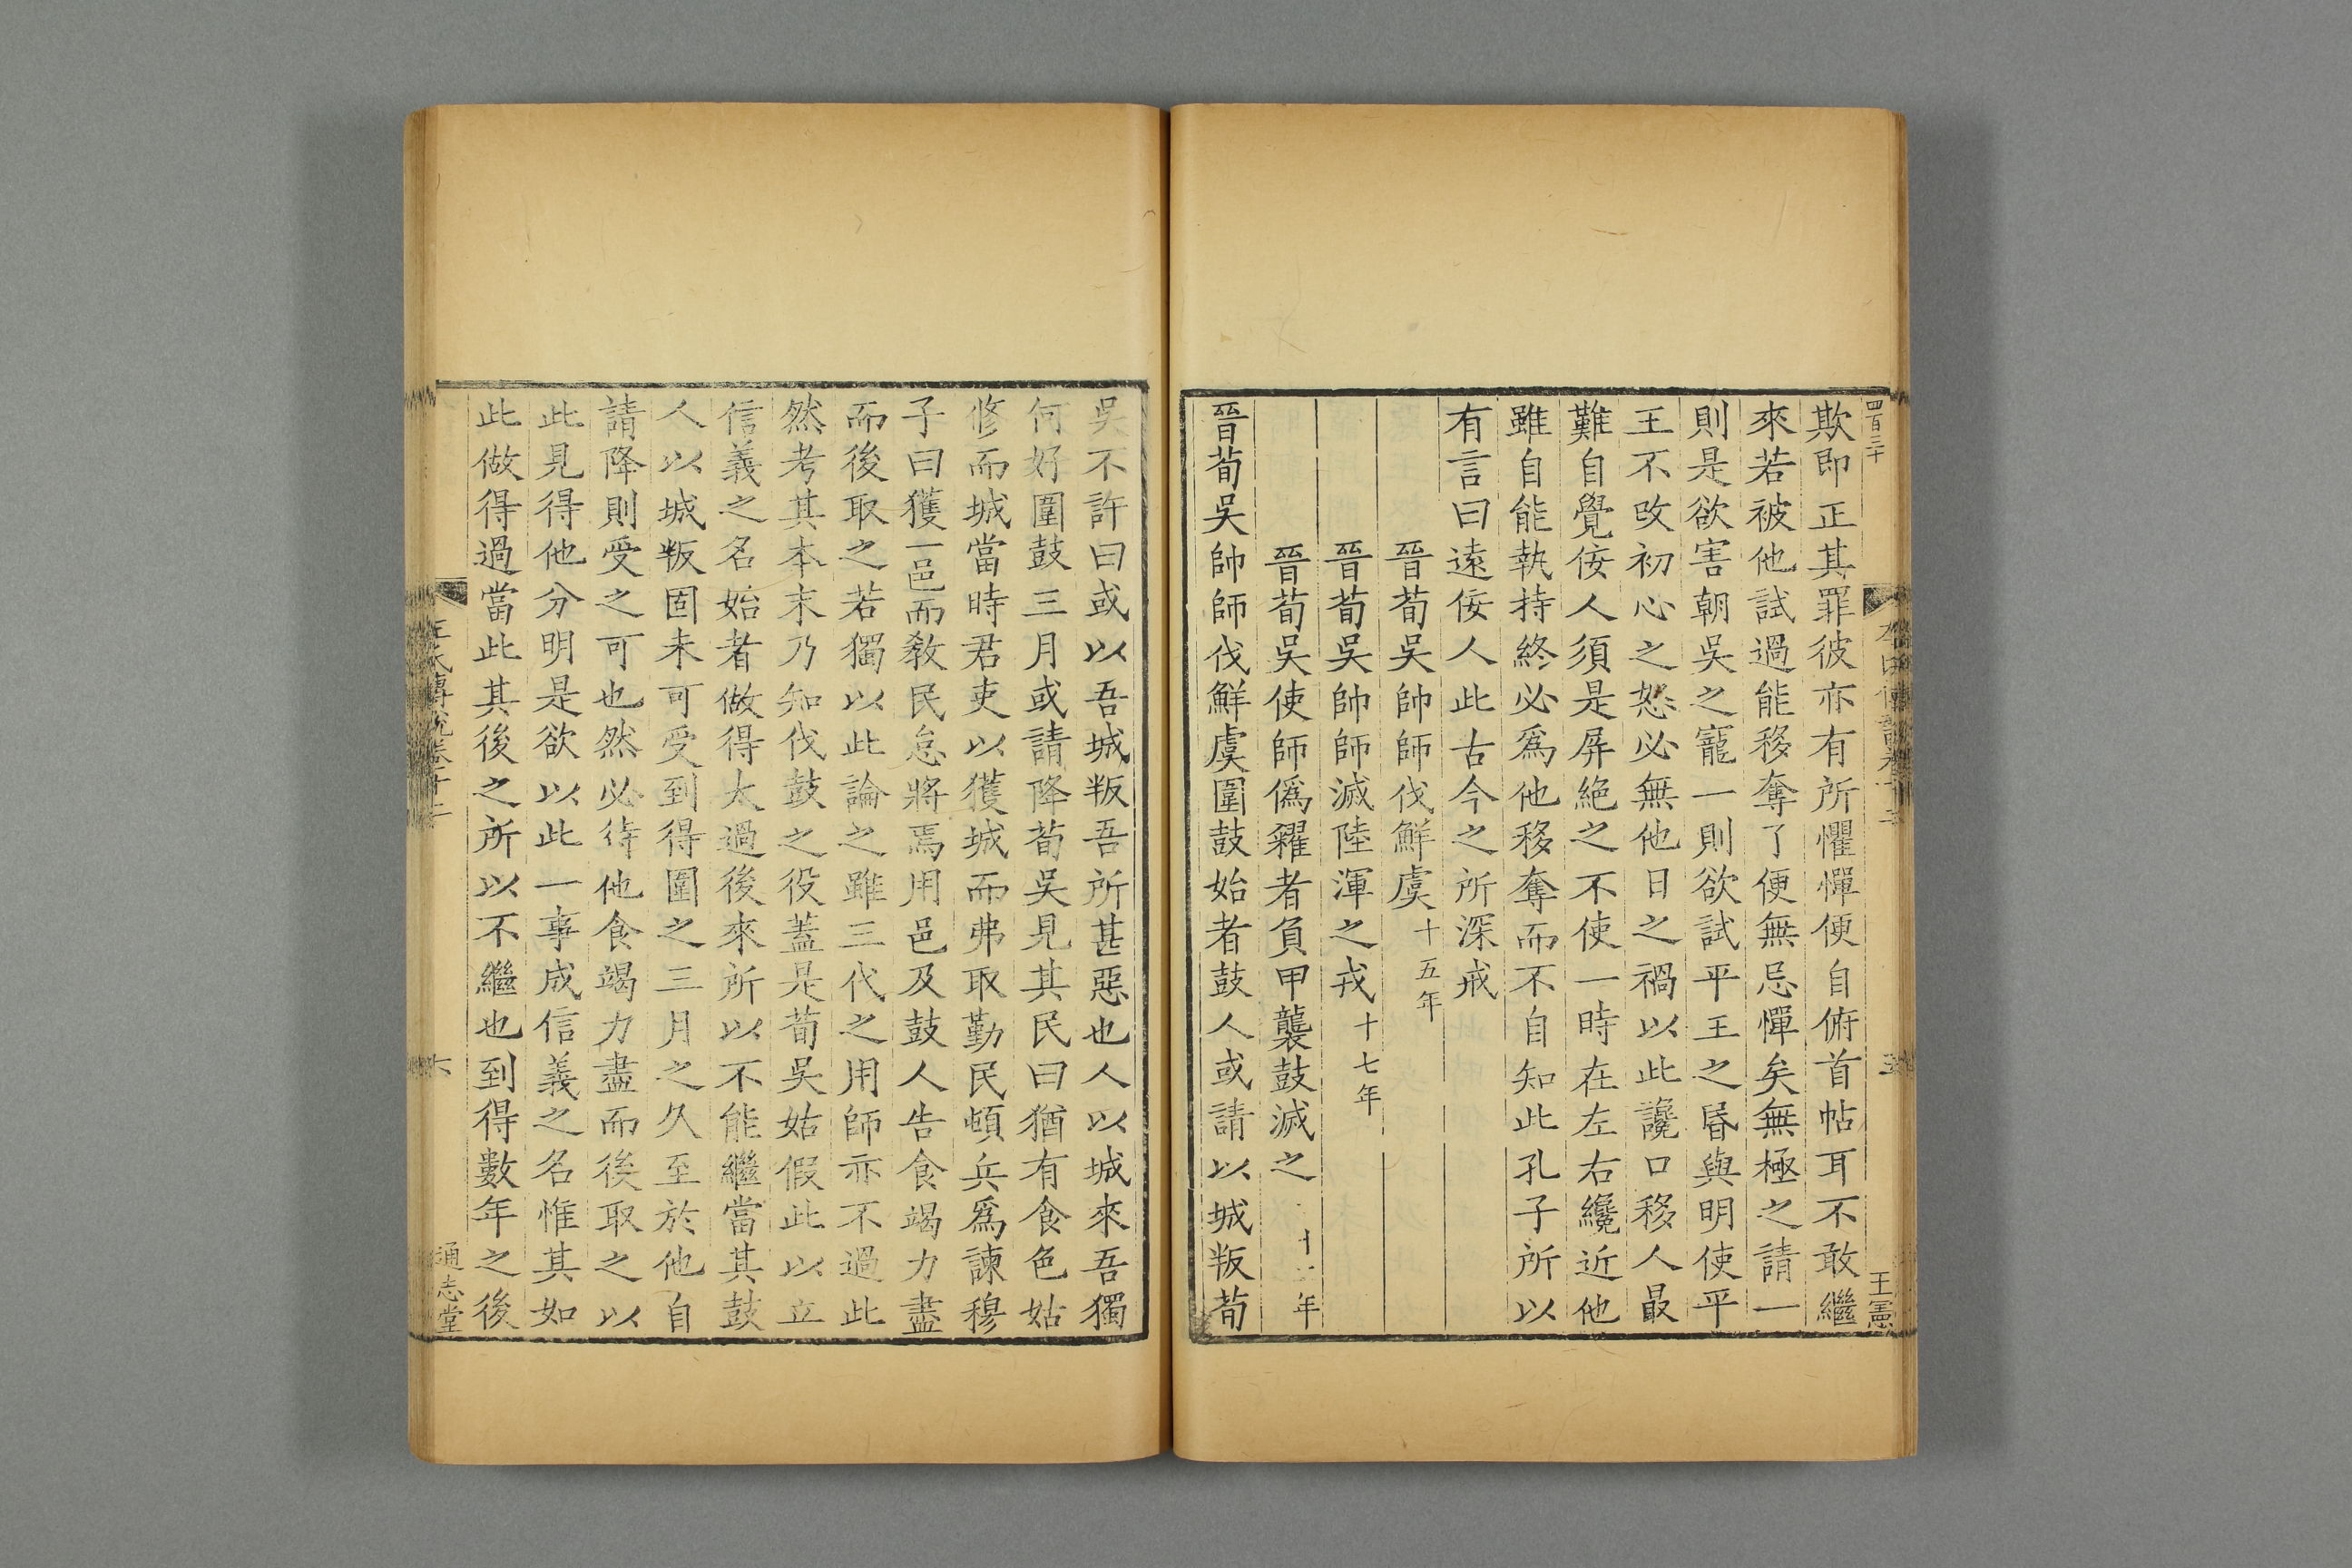 四百三十
王憲
欺即正其罪彼亦有所懼憚便自俯首帖耳不敢繼
來若被他試過能移奪了便無忌憚矣無極之請一
則是欲害朝吳之寵一則欲試平王之昬與明使平
王不改初心之怒必無他日之禍以此讒口移人最
難自覺佞人須是屏絶之不使一時在左右纔近他
雖自能執持終必爲他移奪而不自知此孔子所以
有言曰遠佞人此古今之所深戒
晉荀吳帥師伐鮮虞十五年
晉荀吳帥師滅陸渾之戎十七年
晉荀吳使師僞糴者負甲襲鼓滅之
晉荀吳帥師伐鮮虞圍鼓始者鼓人或請以城叛荀
吳不許曰或以吾城叛吾所甚惡也人以城來吾獨
何好圍鼓三月或請降荀吳見其民曰猶有食色姑
修而城當時君吏以獲城而弗取勤民頓兵爲諫穆
子曰獲一邑而敎民怠將焉用邑及鼓人告食竭力盡
而後取之若獨以此論之雖三代之用師亦不過此
然考其本末乃知伐鼓之役蓋是荀吳姑假此以立
信義之名始者做得太過後來所以不能繼當其鼓
人以城叛固未可受到得圍之三月之久至於他自
請降則受之可也然必待他食竭力盡而後取之以
此見得他分明是欲以此一事成信義之名惟其如
此做得過當此其後之所以不繼也到得數年之後
六
通志堂